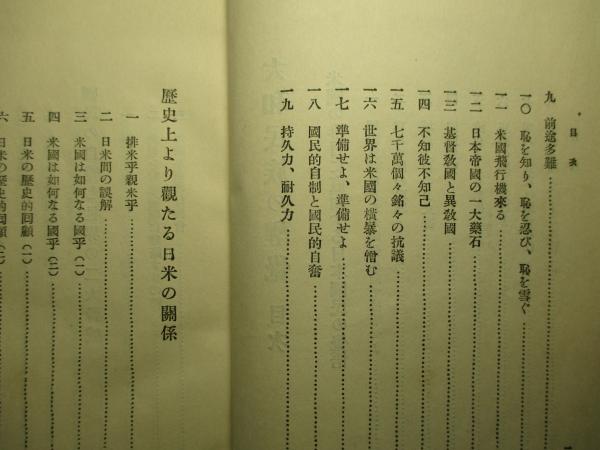 目次
九 前途多難
一〇 恥を知り、恥を忍び、恥を雪ぐ
一一 米國飛行機來る
一二 日本帝國の一大藥石
一三 基督敎國と異敎國
一四 不知彼不知己
一五 七千萬個々銘々の抗議
一六 世界は米國の橫暴を憎む
一七 準備せよ、準備せよ
一八 國民的自制と國民的自奮
一九 持久力、耐久力
歷史上より觀たる日米の關係
一 排米乎親米乎
二 日米間の誤解
三 米國は如何なる國乎(一)
四 米國は如何なる國乎(二)
五 日米の歷史的囘顧(一)
六 日米の歷史的囘顧(二)